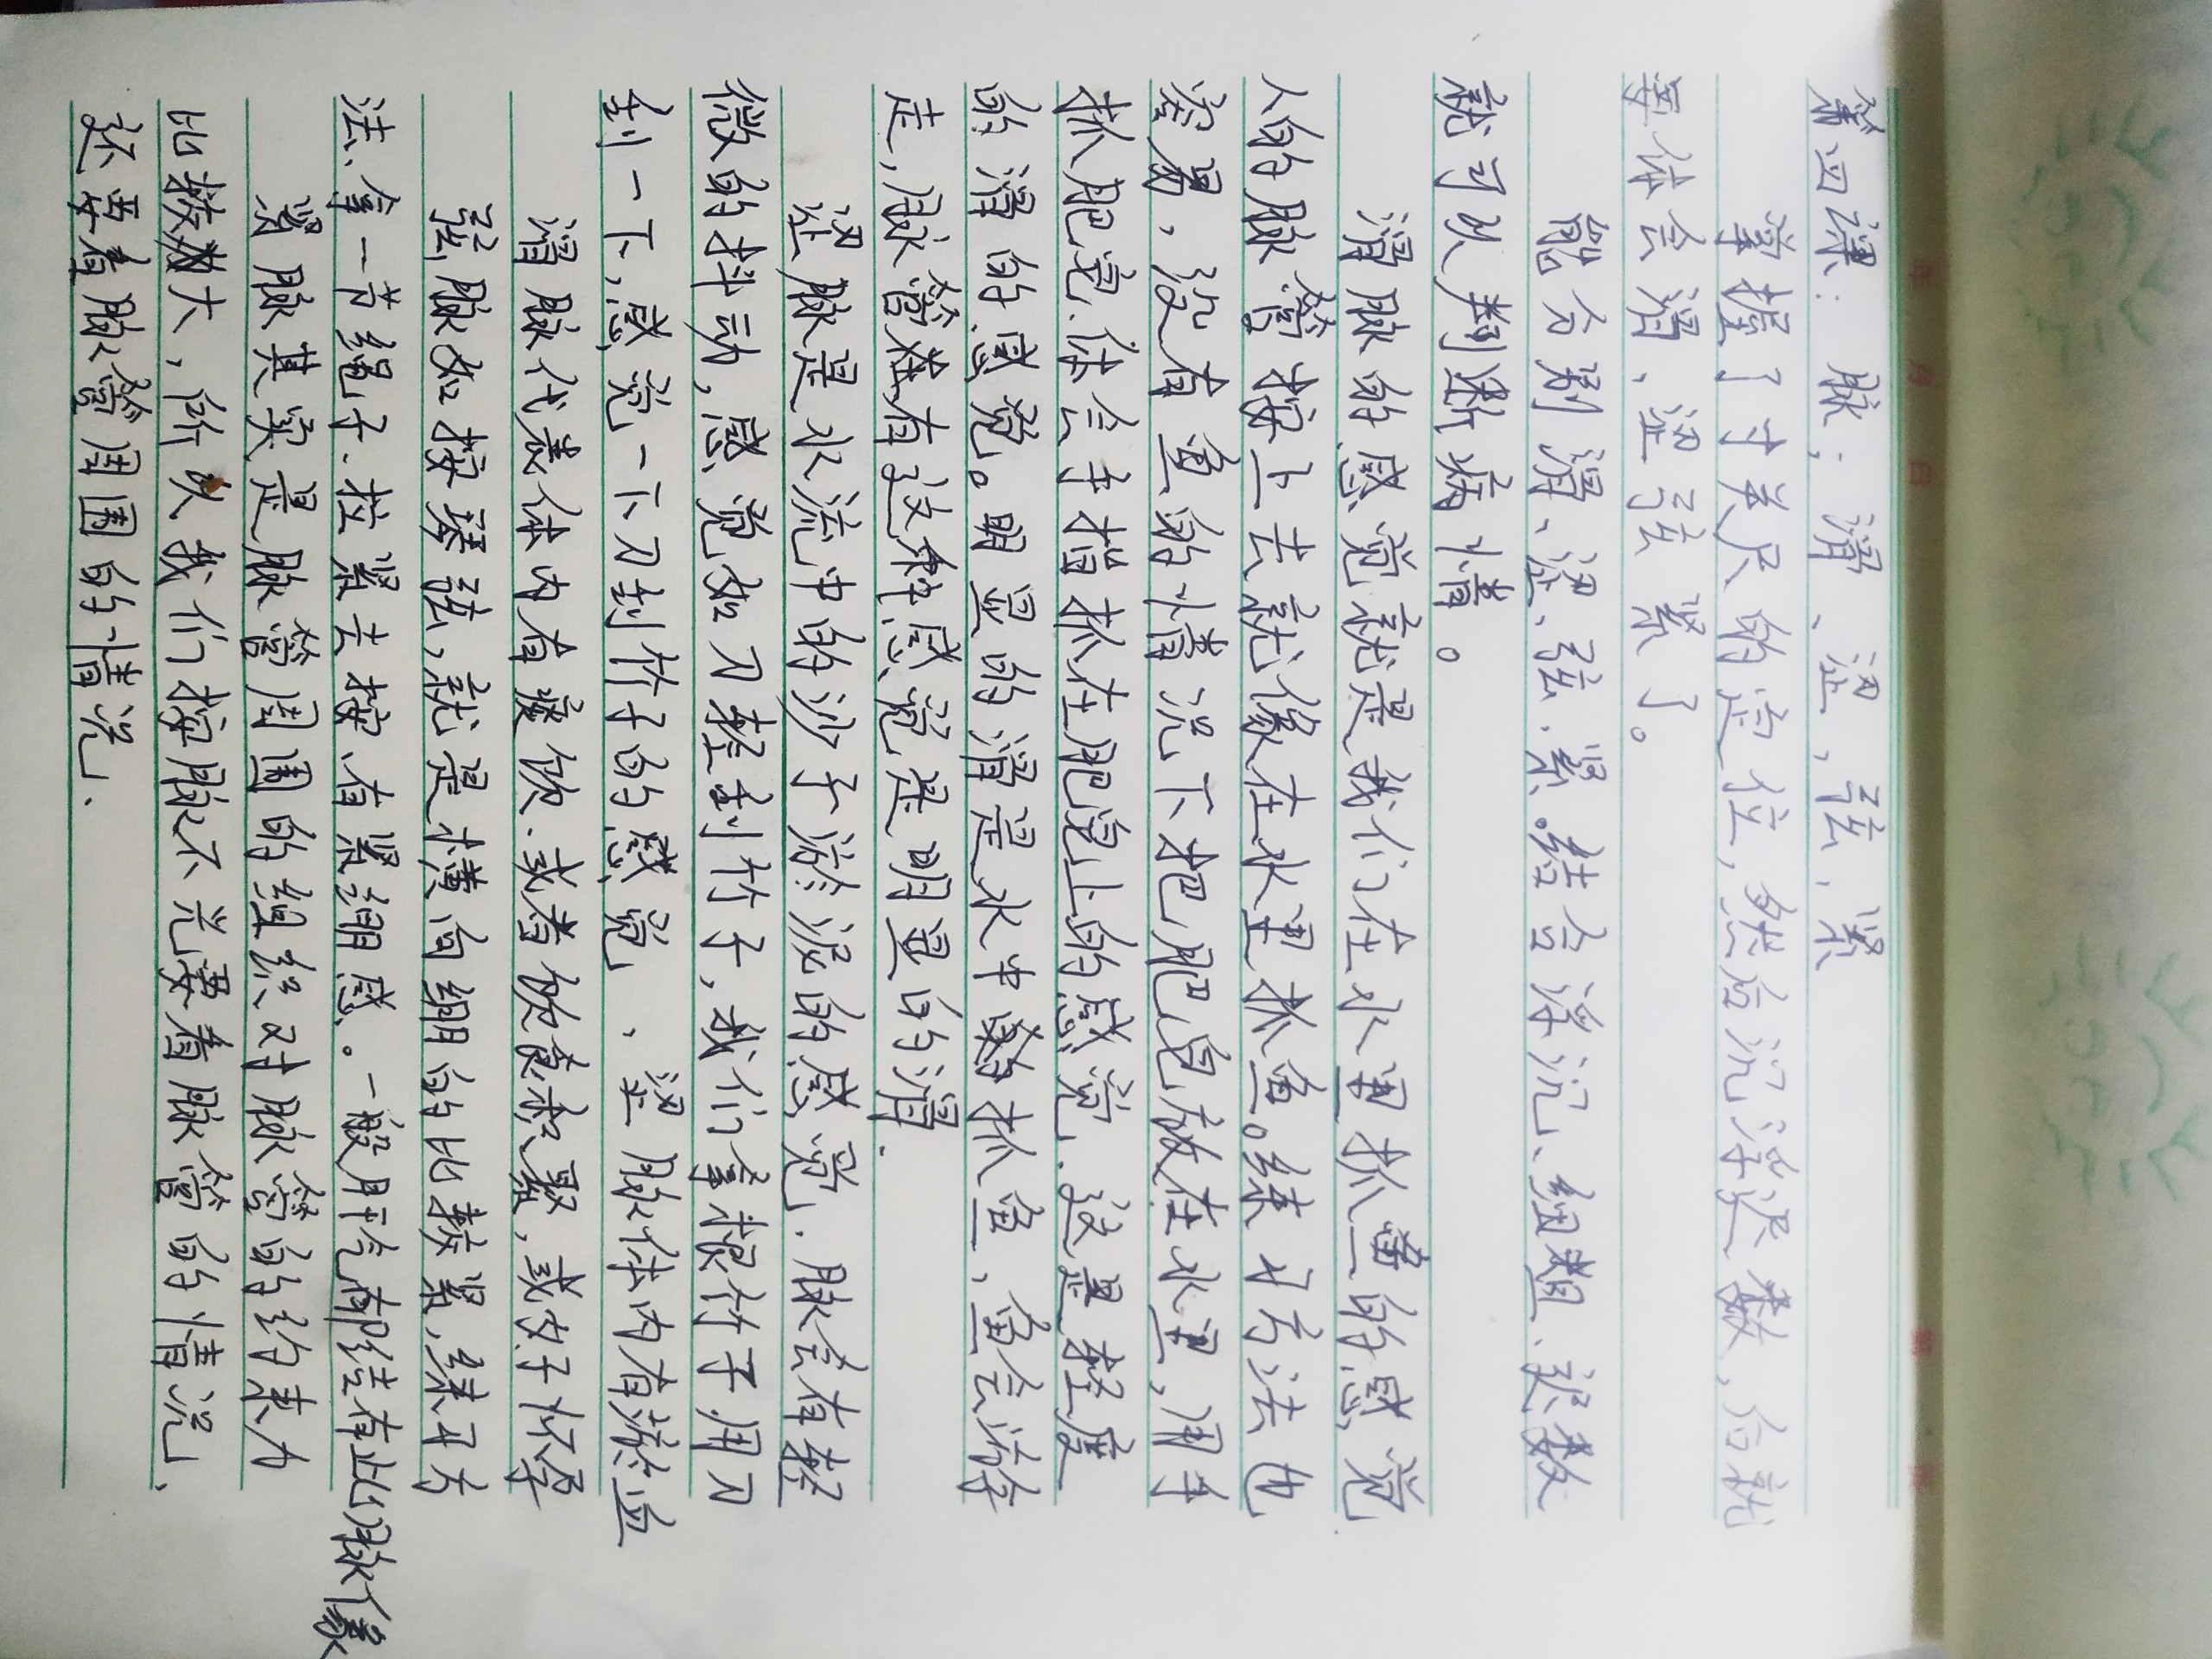 第四课: 脉: 滑、涩, 弦、紧
掌握了寸关尺的定位, 然后沉浮迟数, 后就
等体会滑、涩弦 紧了。
能分别滑、涩、弦、紧。结合浮沉、细粗、迟数
就可以判断病情。
滑脉的感觉就是我们在水里抓鱼的感觉
人的脉管按上去就像在水里抓鱼。练习方法也
容易, 没有鱼的情况下把肥皂放在水里, 用手
抓肥皂、体会手指抓在肥皂上的感觉、这是轻度
的滑的感觉。明显的滑是水中 抓鱼, 鱼会游
走, 脉管 有这种感觉是明显的滑.
涩脉是水流中的沙子淤泥的感觉. 脉会有轻
微的抖动, 感觉如刀轻刮竹子, 我们拿根竹子用刀
刮一下, 感觉一下刀刮竹子的感觉、、涩脉体内有淤血
滑脉代表体内有痰饮. 或者饮食积聚, 或女子怀孕
弦脉如按琴弦, 就是横向绷的比较紧, 练习方
法、拿一节绳子. 拉紧去按、有紧绷感。一般肝气郁结有此脉像
紧脉其实是脉管周围的组织对脉管的约束力
比较大, 所以我们按脉不光要看脉管的情况、
还要看脉管周围的情况、
年 月 日